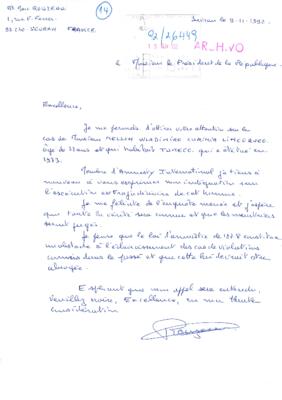 14
Mr Marc ROUZEAU
1, rue F.
93270 SEVRAN FRANCE.
Sevran le 9-11-1992
92/26449
AR_H.VO
à Monsieur le Président de la République.
Excellence,
Je me permets d'attirer votre attention sur le
cas de Monsieur NELSON WLADIMIRO CURIÑIR LINCOQUEO
âgé de 22 ans et qui habitait TEMUCO. qui a été tué en
1973.
Membre d'Amnesty International je tiens à
nouveau à vous exprimer mon indignation sur
l'exécution extrajudiciaire de cet homme.
Je me félicite de l'enquête menée et j'espère
que toute la vérité sera connue et que les meurtriers
seront jugés.
Je pense que la loi d'amnistie de 1978 constitue
un obstacle à l'éclaircissement des cas de violations
commises dans le passé et que cette loi devrait être
abrogée.
Espérant que mon appel sera entendu,
veuillez croire, Excellence, en ma haute
considération